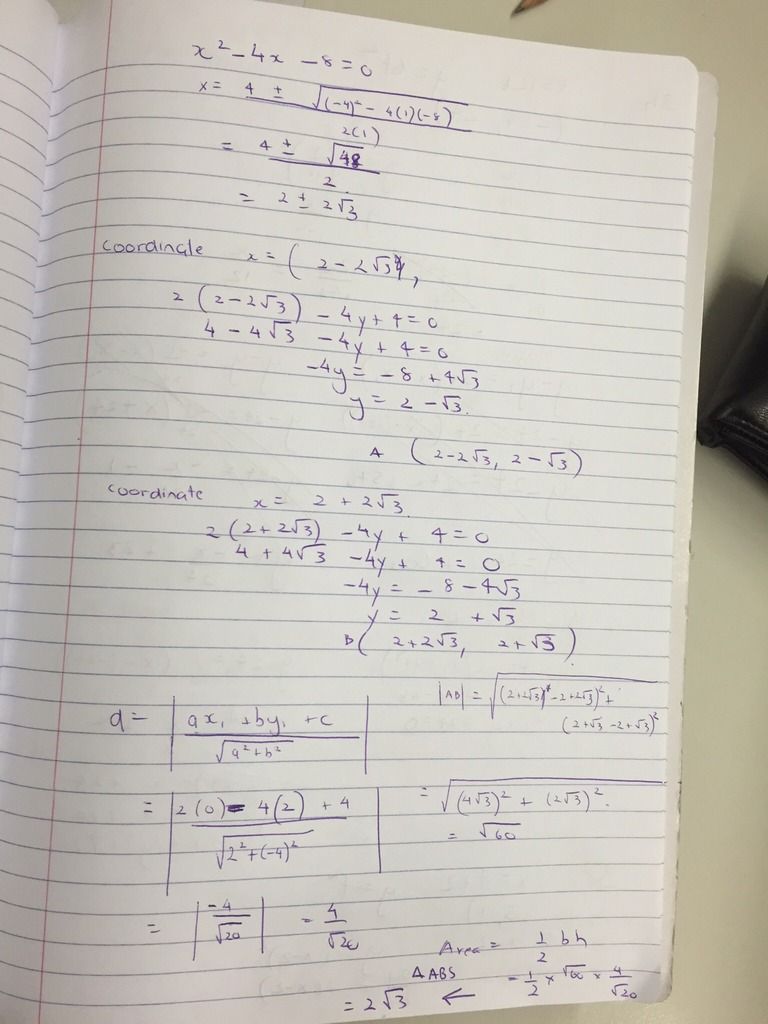 x² - 4x - 8 = 0
x = 4 ± √((-4)² - 4(1)(-8)) / 2(1)
= 4 ± √48 / 2
= 2 ± 2√3
coordinate x = ( 2 - 2√3 ,
2 (2 - 2√3) - 4y + 4 = 0
4 - 4√3 - 4y + 4 = 0
-4y = -8 + 4√3
y = 2 - √3.
A (2 - 2√3, 2 - √3)
coordinate x = 2 + 2√3.
2 (2 + 2√3) - 4y + 4 = 0
4 + 4√3 - 4y + 4 = 0
-4y = -8 - 4√3
y = 2 + √3
B ( 2 + 2√3, 2 + √3 )
d = | ax₁ + by₁ + c / √(a² + b²) |
= | 2(0) - 4(2) + 4 / √(2² + (-4)²) |
= | -4 / √20 | = 4 / √20
|AB| = √((2+2√3) - 2 + 2√3)² + (2+√3 - 2+√3)²
= √((4√3)² + (2√3)².
= √60
Area = 1/2 bh
ΔABS = 1/2 × √60 × 4/√20
= 2√3 ←